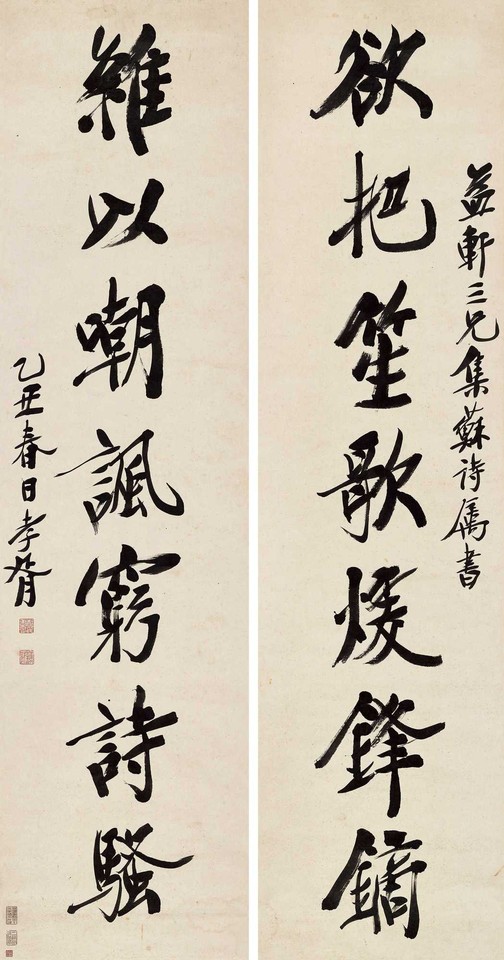 益軒三兄集蘇詩属書
欲把笙歌煖鋒鏑
雜以嘲諷窮詩騷
乙丑春日孝胥